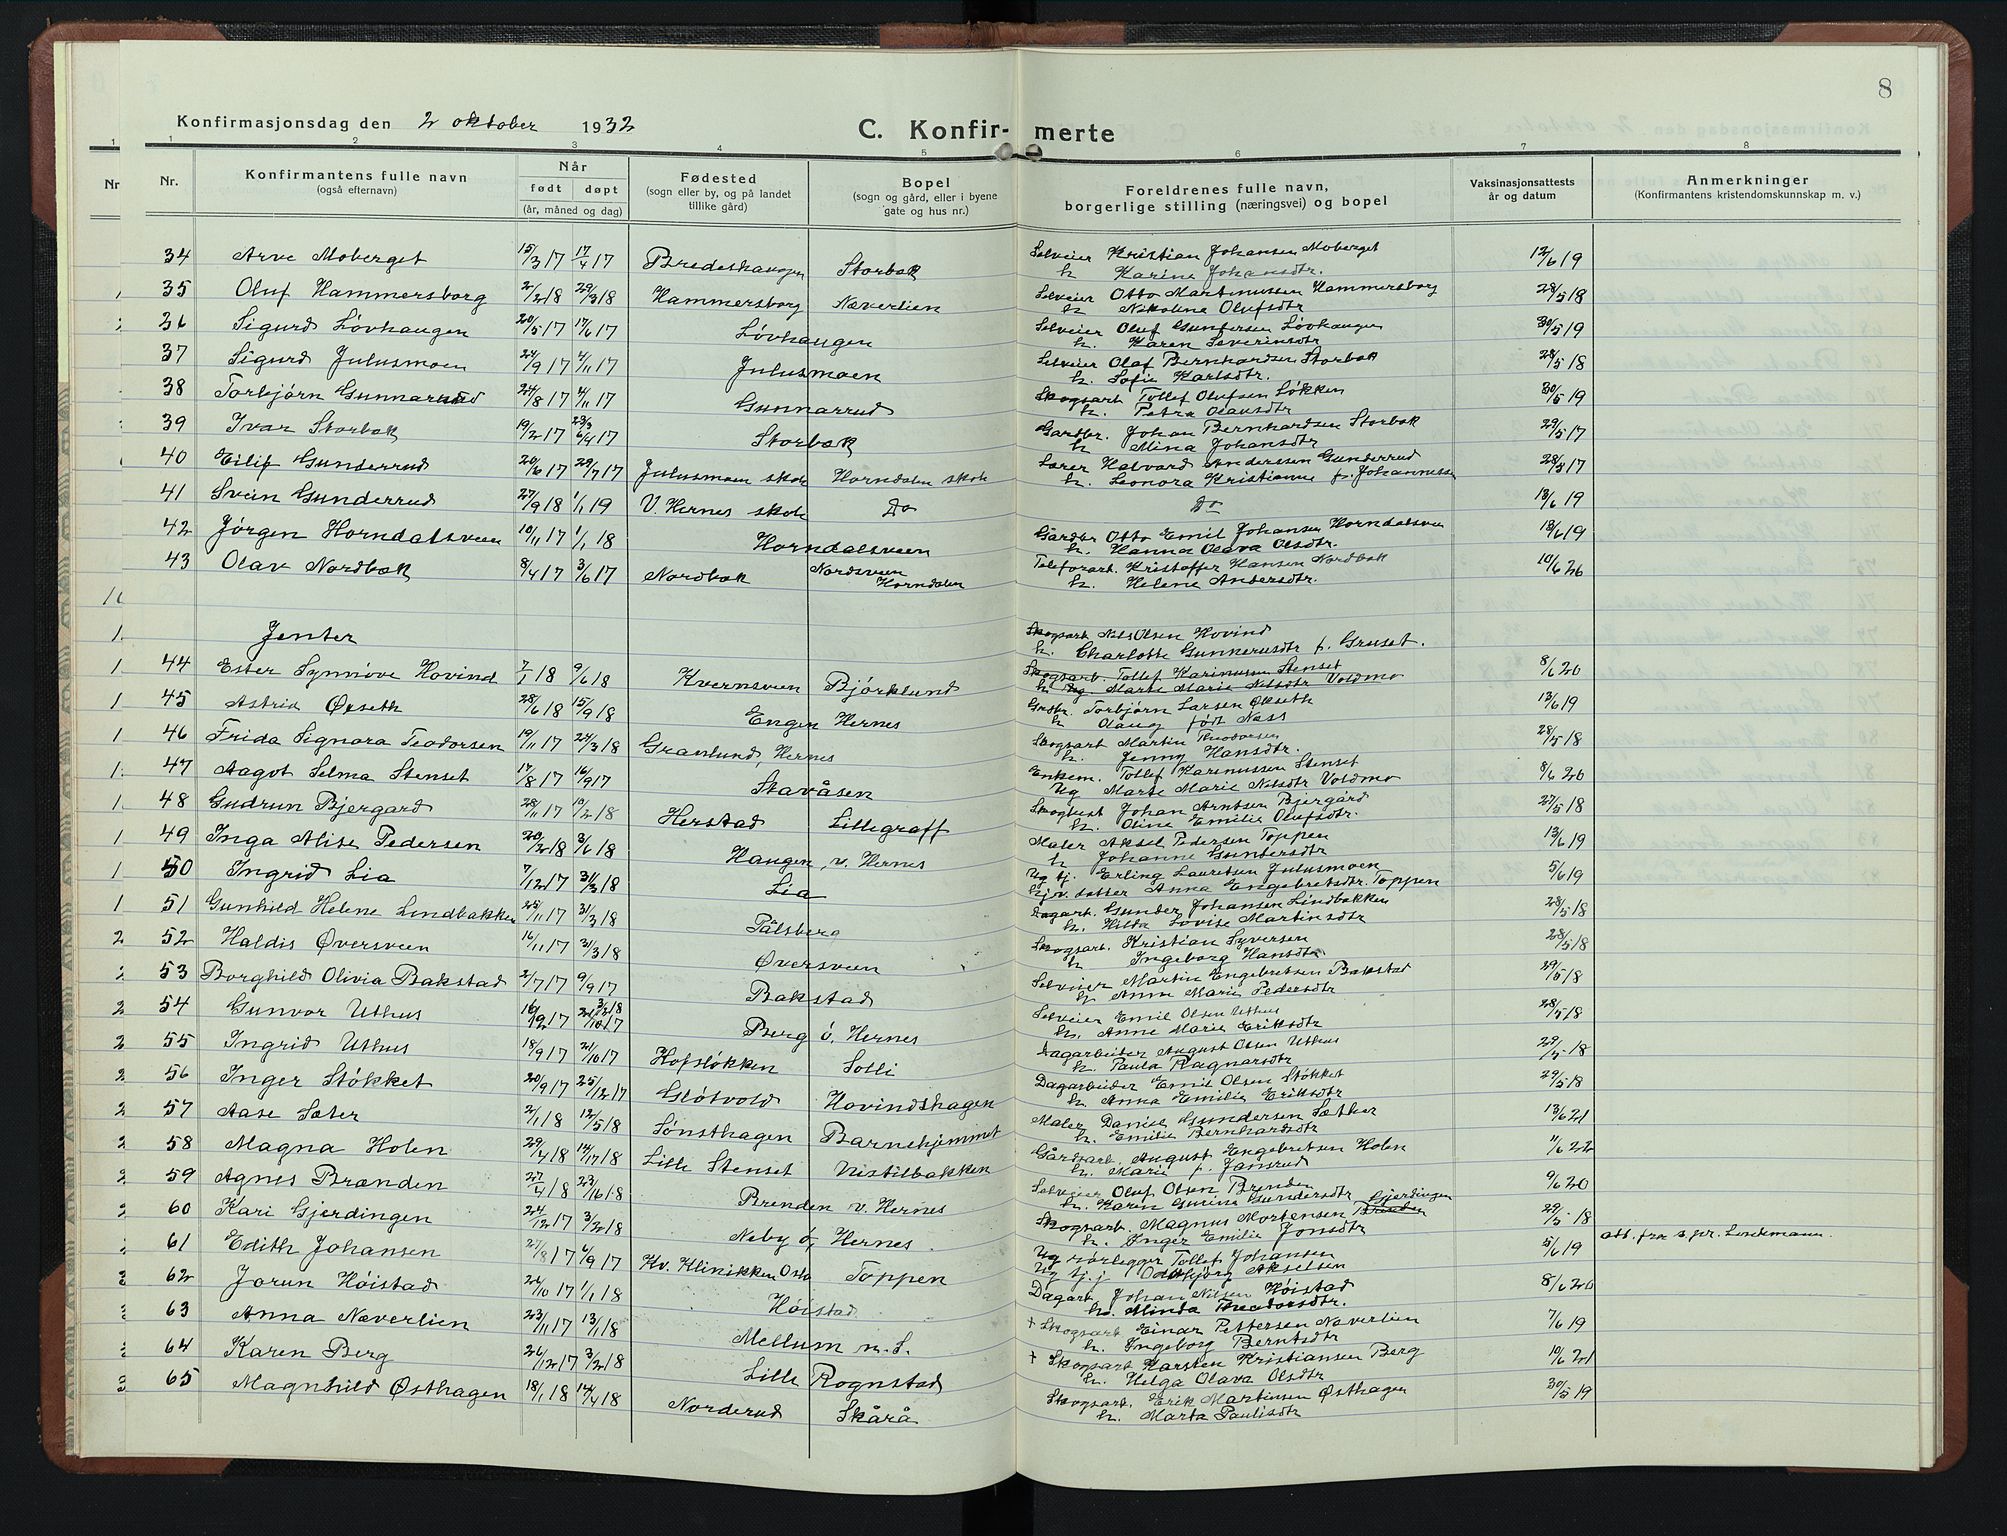 8
Konfirmasjonsdag den 2 oktober 1932
C. Konfir- merte
1 1 2 3 4 5 6 7 8
Nr Nr. Konfirmantens fulle navn (også efternavn) Når født døpt (år, måned og dag) Fødested (sogn eller by, og på landet tillike gård) Bopel (sogn og gård, eller i byene gate og hus nr.) Foreldrenes fulle navn, borgerlige stilling (næringsvei) og bopel Vaksinasjonsattests år og datum Anmerkninger (Konfirmantens kristendomskunnskap m. v.)
34 Arve Moberget 15/3 17 17/4 17 Bredeshaugen Storbak Selveier Kristian Johansen Moberget h. Karine Johansdtr. 12/6 19
35 Oluf Hammersborg 2/2 18 29/3 18 Hammersborg Næverlien Selveier Otto Martinussen Hammersborg h. Nikoline Olufsdtr 28/5 18
36 Sigurd Løvhaugen 20/5 17 17/6 17 Løvhaugen Selveier Oluf Gundersen Løvhaugen h. Karen Severinsdtr 30/5 19
37 Sigurd Julusmoen 24/9 17 4/11 17 Julusmoen Selveier Olaf Bernhardsen Storbak h. Sofie Karlsdtr. 28/5 18
38 Torbjørn Gunnarrud 24/8 17 4/11 17 Gunnarrud Skogsarb Tollef Olufsen Løkken h. Petra Olausdtr 30/5 19
39 Ivar Storbak 19/2 17 6/4 17 Storbak Gardbr. Johan Bernhardsen Storbak h. Mina Johansdtr 29/5 17
40 Eilif Gunderrud 20/6 17 29/7 17 Julusmoen skole Horndalen skole Lærer Halvard Anderssen Gunderrud h. Leonora Kristianne f. Johannessen 28/8 17
41 Svein Gunderrud 27/9 18 1/1 19 V. Hernes skole Do Do 13/6 19
42 Jørgen Horndalsveen 10/11 17 1/1 18 Horndalsveen Gårdbr Otto Emil Johansen Horndalsveen h. Hanna Olava Olsdtr. 18/6 19
43 Olav Nordbak 8/4 17 3/6 17 Nordbak Nordsveen Horndalen Telefonarb. Kristoffer Hansen Nordbak h. Helene Andersdtr. 10/6 26
Jenter
44 Ester Synnøve Hovind 7/1 18 9/6 18 Kvernsveen Bjørklund Skogsarb Nils Olsen Hovind h. Charlotte Gunnerusdtr f. Gruset. 8/6 20
Skogsarb. Tollef Karinusen Stenset h. Marte Marie Nilsdtr Voldmo
45 Astrid Økseth 28/6 18 15/9 18 Engen Hernes Grdbr. Torbjørn Larsen Økseth h Olaug født Næss 13/6 19
46 Frida Signora Teodorsen 19/11 17 24/3 18 Granlund, Hernes Skogsarb Martin Theodorsen h. Jenny Hansdtr. 28/5 18
47 Aagot Selma Stenset 17/8 17 16/9 17 Stavåsen Enkem. Tollef Karinussen Stenset Ug Marte Marie Nilsdtr Voldmo 8/6 20
48 Gudrun Bjergård 28/11 17 10/2 18 Herstad Lillegraff Johan Arntsen Bjergård h. Oline Emilie Olufsdtr. 27/5 18
49 Inga Alise Pedersen 20/2 18 3/6 18 Haugen, v. Hernes Maler Aksel Pedersen Toppen h Johanne Gundersdtr 13/6 19
50 Ingrid Lia 7/12 17 31/3 18 Lia Ug tj. Erling Lauritsen Julusmoen hjv. datter Anna Engebretsdtr. Toppen 5/6 19
51 Gunhild Helene Lindbakken 25/11 17 31/3 18 Pålsberg Dagarb. Gunder Johansen Lindbakken h. Hilda Lovise Martinsdtr 28/5 18
52 Haldis Øversveen 16/11 17 31/3 18 Øversveen Skogsarb. Kristian Syversen h Ingeborg Hansdtr 28/5 18
53 Borghild Olivia Bakstad 2/7 17 9/9 17 Bakstad Selveier Martin Engebretsen Bakstad h. Anne Marie Pedersdtr 29/5 18
54 Gunvor Uthus Berg ö. Hernes Selveier Emil Olsen Uthus h. Anne Marie Eriksdtr 28/5 18
55 Ingrid Uthus 18/9 17 21/10 17 Hofsløkken Solli Dagarbeider August Olsen Uthus h. Paula Ragnarsdtr 29/5 18
56 Inger Støkket 20/9 17 25/12 17 Gløtvold Hovindshagen Dagarbeider Emil Olsen Støkket h. Anna Emilie Eriksdtr 29/5 18
57 Aase Sæter 2/1 18 12/5 18 Lønsthagen Barnehjemmet Maler Daniel Gundersen Sæther h. Emilie Bernhardsdtr 13/6 21
58 Magna Holen 29/4 18 14/7 18 Lille Stenset Vistilbakken Gårdsarb. August Engebretsen Holen h. Marie f. Jansrud 11/6 22
59 Agnes Brænden 27/4 18 23/6 18 Brenden v. Hernes Selveier Oluf Olsen Brenden h. Karen Gurine Gundersdtr 9/6 20
60 Kari Gjerdingen 24/12 17 3/2 18 Neby ö, Hernes Skogsarb. Magnus Mortensen Gjerdingen h. Inger Emilie Jonsdtr 29/5 18
61 Edith Johansen 27/8 17 6/9 17 Kv. Klinikken Oslo Toppen Ug rørlegger Tollef Johansen Ug tj. j Oddbjørg Akselsen 5/6 19 att. fra s.pr. Lindemann.
62 Jorun Høistad 24/10 17 1/1 18 Høistad Dagarb. Johan Nilsen Høistad h. Minda Theodorsdtr. 8/6 20
63 Anna Næverlien 23/11 17 13/1 18 Mellum n. S. + Skogsarb Einar Pettersen Næverlien h. Ingeborg Berntsdtr 7/6 19
64 Karen Berg 26/12 17 3/2 18 Lille Rognstad + Skogsarb Karsten Kristiansen Berg h. Helga Olava Olsdtr 10/6 21
65 Magnhild Østhagen 18/1 18 14/4 18 Norderud Skårå Skogsarb. Erik Martinsen Østhagen h. Marta Paulisdtr 30/5 19